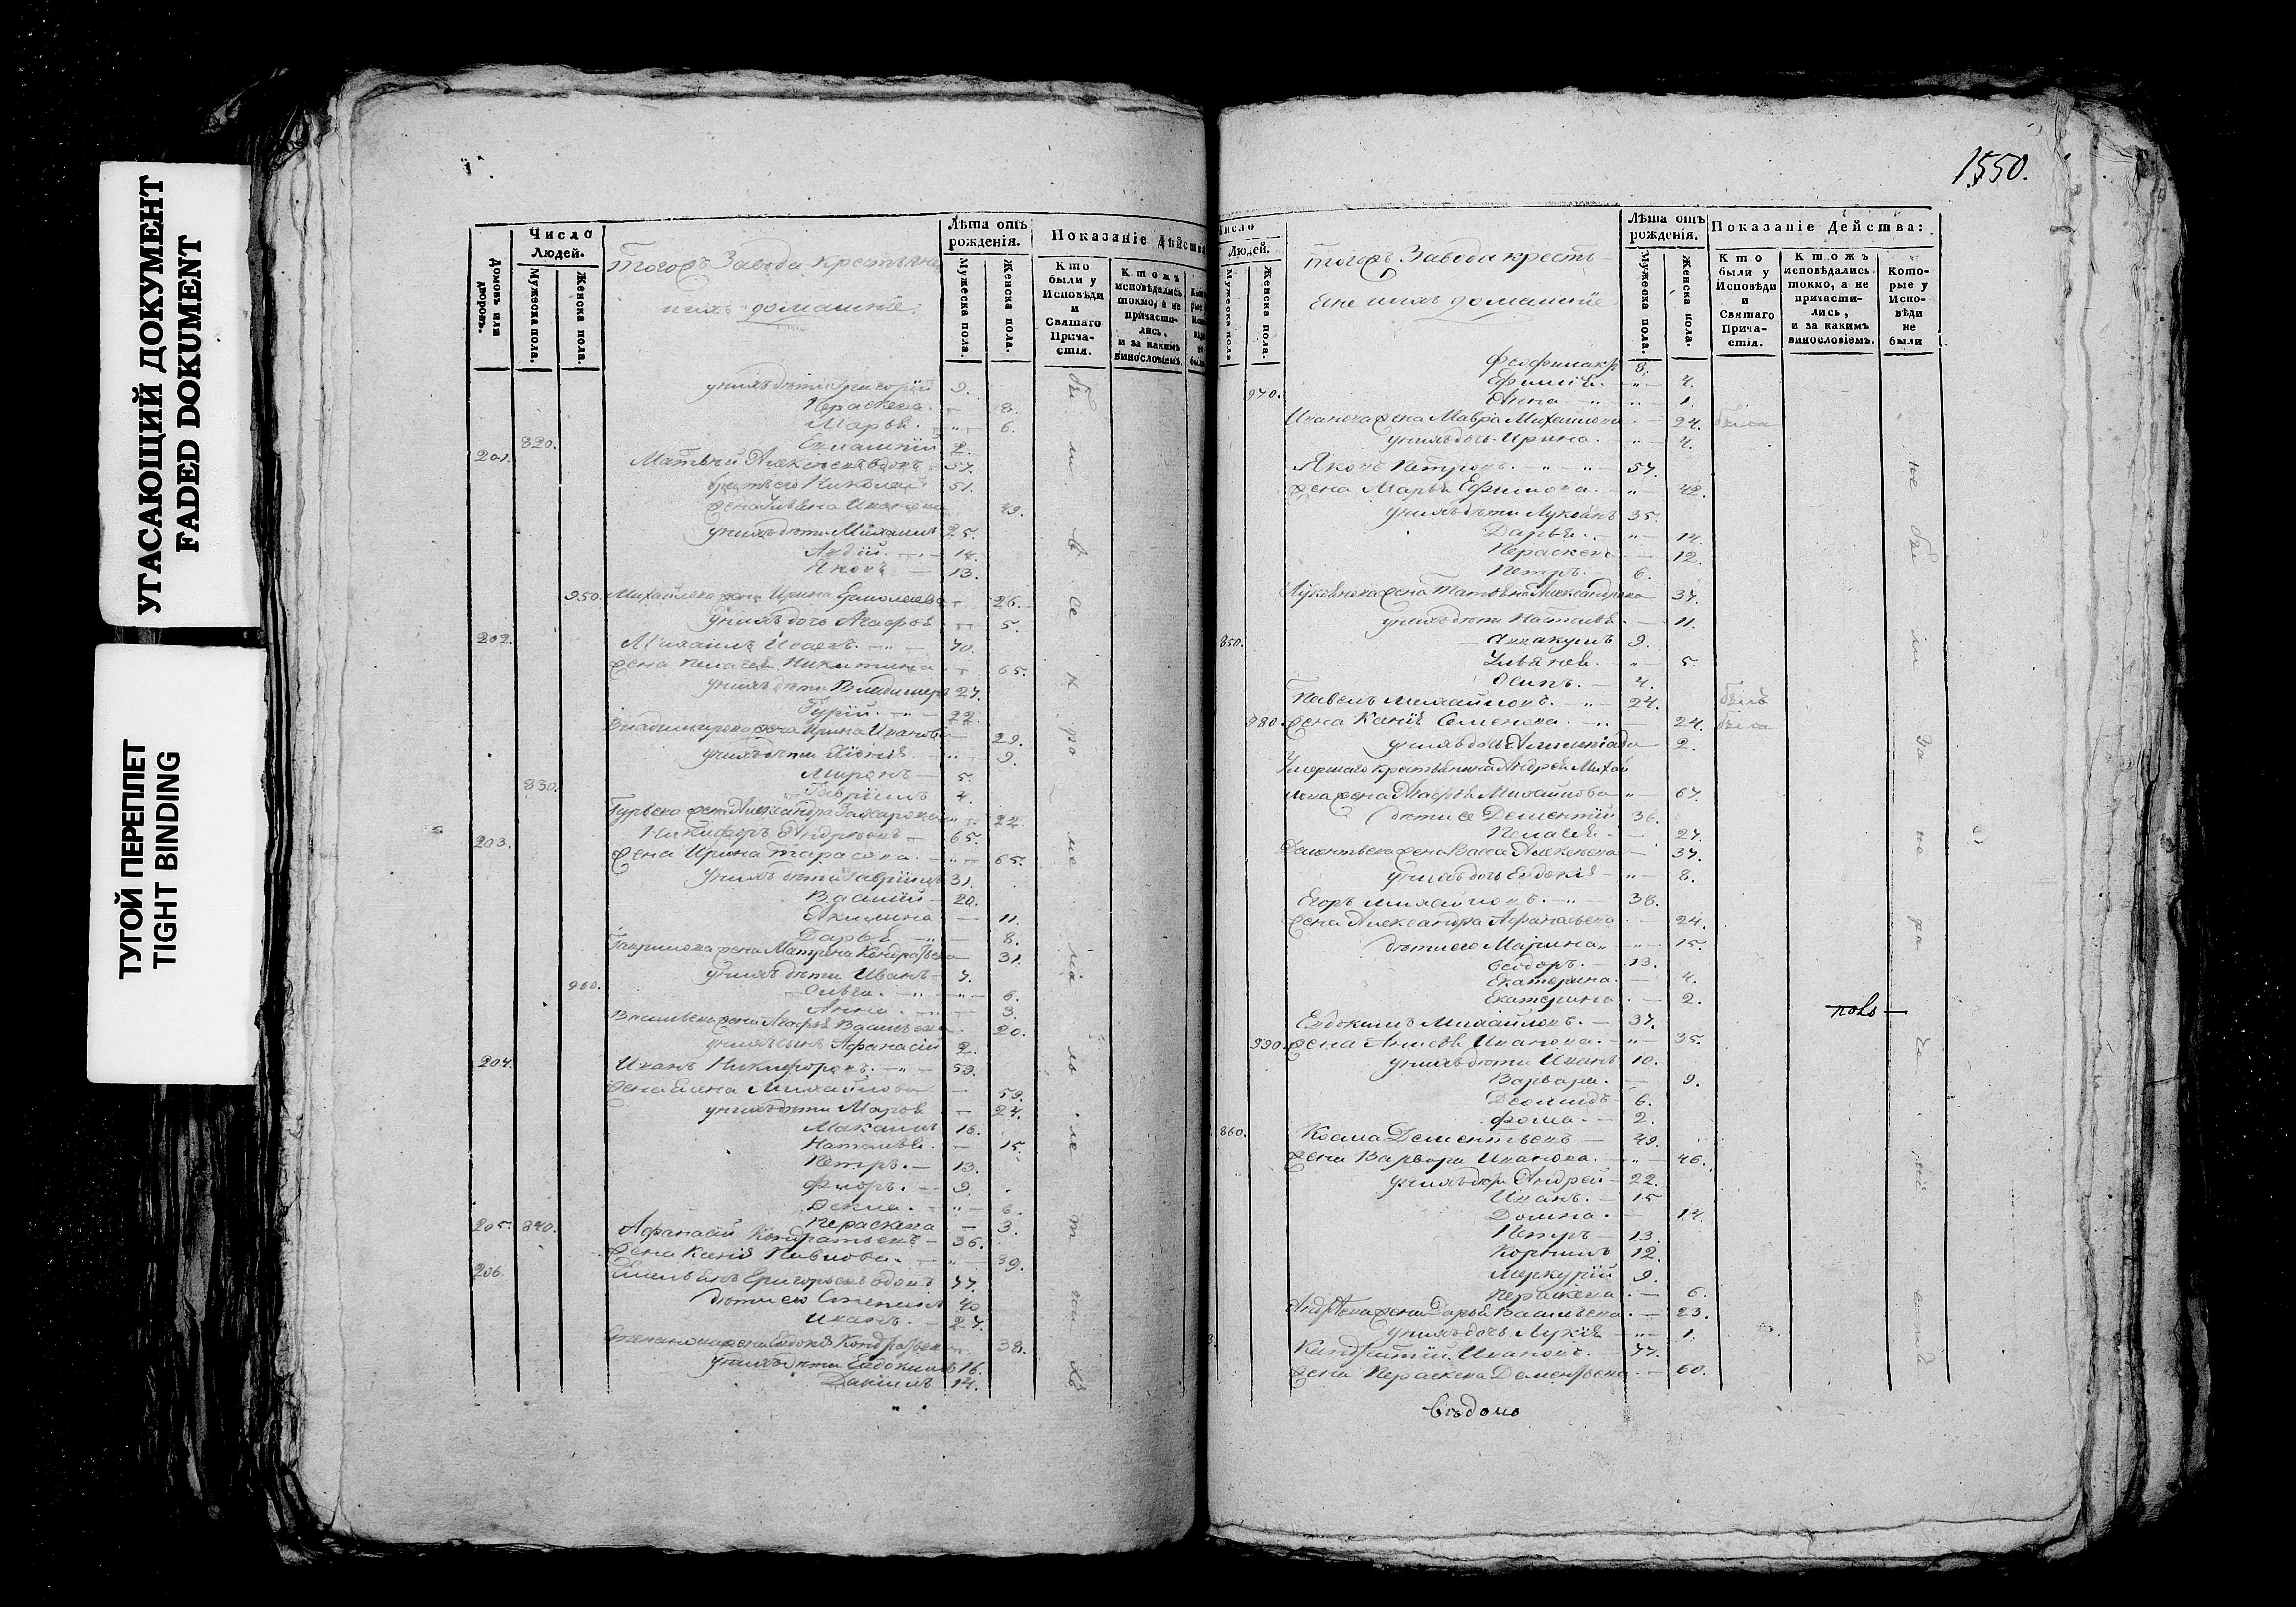 УГАСАЮЩИЙ ДОКУМЕНТ
FADED DOKUMENT
ТУГОЙ ПЕРЕПЛЕТ
TIGHT BINDING
Домовъ или дворовъ.
Число Людей.
Мужеска пола.
Женска пола.
тогожъ Завода крестьяне
и ихъ домашніе.
Лѣта отъ рожденія.
Мужеска пола.
Женска пола.
Показаніе Дѣйства
Кто были у Исповѣди и Святаго Прича-стія.
Ктожъ исповѣдались токмо, а не причасти-лись, и за какимъ винословіемъ.
у нихъ дѣти Григорій 9.
Параскева 8.
Марья 6.
820. 2.
201. Матвѣй Алексѣевъ вдовъ 57.
братъ его Николай 51.
жена Ульяна Иванова 49.
у нихъ дѣти Михаилъ 25.
Авдій 14.
Яковъ 13.
950. Михайлова жена Ирина Ермолаева 26.
у нихъ дочь Агафья 5.
202. Михаилъ Исаевъ 70.
жена Пелагея Никитина 65.
у нихъ дѣти Владимеръ 27.
Гурій 22.
Владимирова жена Ирина Иванова 29.
у нихъ дѣти 9.
Миронъ 5.
830. Гавріилъ 4.
Гурьева жена Александра Захарова 22.
203. Никифоръ Андреевъ 65.
жена Ирина Тарасова 65.
у нихъ дѣти Гавріилъ 31.
Василій 20.
Акилина 11.
Дарья 8.
Гаврилова жена Матрена Кондратьева 31.
у нихъ дѣти Иванъ 7.
960. Ольга 6.
Анна 3.
Васильева жена Агафья Васильева 20.
у нихъ сынъ Афанасій 2.
204. Иванъ Никифоровъ 59.
жена Елена Михайлова 59.
у нихъ дѣти Марѳа 24.
Максимъ 16.
Наталья 15.
Петръ 13.
Флоръ 9.
Ѳекла 6.
Параскева 3.
205. 840. Афанасій Кондратьевъ 36.
жена Ксенія Павлова 39.
206. Емельянъ Григорьевъ вдовъ 77.
дѣти его Степанъ 40.
Иванъ 27.
Степанова жена Евдокія Кондратьева 38.
у нихъ дѣти Евдокимъ 16.
Даніилъ 14.
1550.
Число Людей.
Мужеска пола
Женска пола.
тогожъ Завода кресть-
яне и ихъ домашніе
Лѣта отъ рожденія.
Мужеска пола.
Женска пола.
Показаніе Действа:
Кто были у Исповѣди и Святаго Прича-стія.
Ктожъ исповѣдались токмо, а не причасти-лись, и за какимъ винословіемъ.
Кото-рые у Испо-вѣди не были
Феофилактъ 8.
4.
970. Анна 1.
Иванова жена Мавра Михайлова 24. была
у нихъ дочь Ирина 4.
Яковъ Петровъ 57.
жена Марья Ефимова 48.
у нихъ дѣти Лукьянъ 35.
Дарья 14.
Параскева 12.
Петръ 6.
Лукьянова жена Татьяна Александрова 37.
у нихъ дѣти Наталья 11.
850. Аввакумъ 9.
Ульянея 5.
Осипъ 4.
Павелъ Михайловъ 24. былъ
980. жена Ксенія Семенова 24. была
у нихъ дочь 2.
Умершаго крестьянина Андрея Михай
лова жена Агафья Михайлова 67.
дѣти ее Дементій 36.
Пелагея 27.
Дементьева жена Васса Алексѣева 37.
у нихъ дочь Евдокія 8.
Егоръ Михайловъ 38.
жена Александра Афанасьева 24.
дѣти его Марина 15.
Ѳеодоръ 13.
Екатерина 4.
Екатерина 2.
Евдокимъ Михайловъ 37.
990. жена Анисья Иванова 35.
у нихъ дѣти Иванъ 10.
Варвара 9.
Діомидъ 6.
Фома 2.
860. Косма Дементьевъ 49.
жена Варвара Иванова 46.
у нихъ дѣти Андрей 22.
Иванъ 15
Домна 14.
Петръ 13.
Корнилъ 12.
Меркурій 9.
Параскева 6.
Андреева жена Дарья Васильева 23.
у нихъ дочь Лукія 1.
Кондратій Ивановъ 77.
жена Параскева Дементьева 60.
вѣдомо